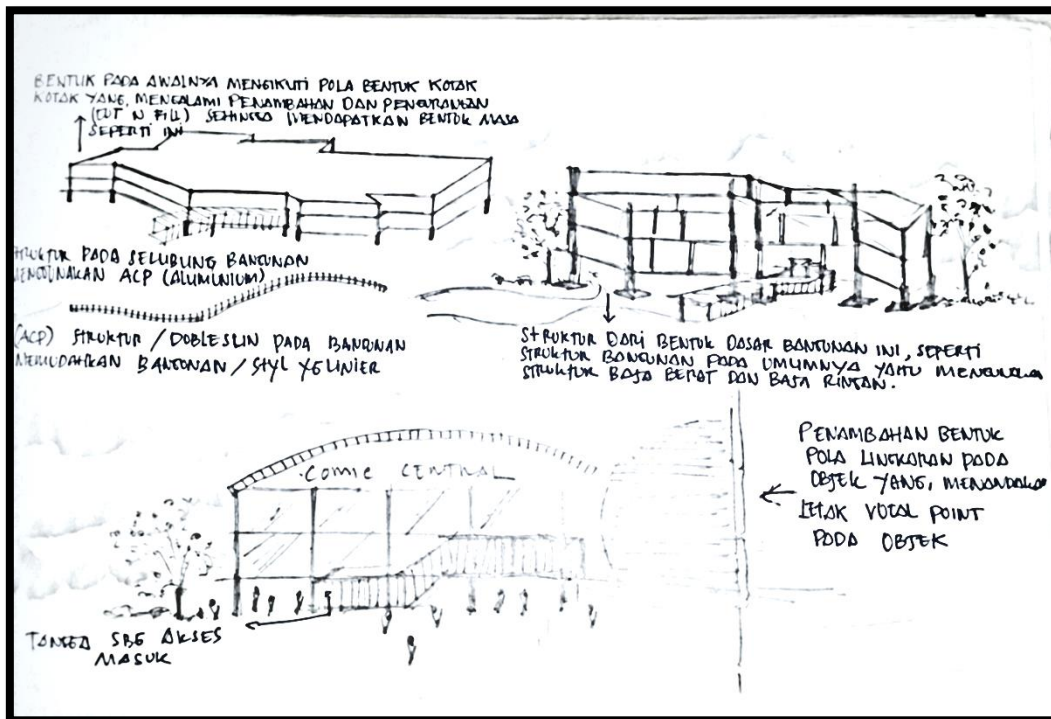 BENTUK PADA AWALNYA MENGIKUTI POLA BENTUK KOTAK
KOTAK YANG, MENGALAMI PENAMBAHAN DAN PENGURANGAN
(CUT N FILL) SEHINGGA MENDAPATKAN BENTUK MASA
SEPERTI INI
STRUKTUR PADA SELUBUNG BANGUNAN
MENGGUNAKAN ACP (ALUMUNIUM)
(ACP) STRUKTUR / DOBLESLIN PADA BANGUNAN
MEMUDAHKAN BANGUNAN /
STRUKTUR DARI BENTUK DASAR BANGUNAN INI, SEPERTI
STRUKTUR BANGUNAN PADA UMUMNYA YAITU MENGGUNAKAN
STRUKTUR BAJA BERAT DAN BAJA RINGAN.
COMIC CENTRAL
PENAMBAHAN BENTUK
POLA LINGKARAN PADA
OBJEK YANG, MENANDAKAN
LETAK VOCAL POINT
PADA OBJEK
TANGGA SBG AKSES
MASUK